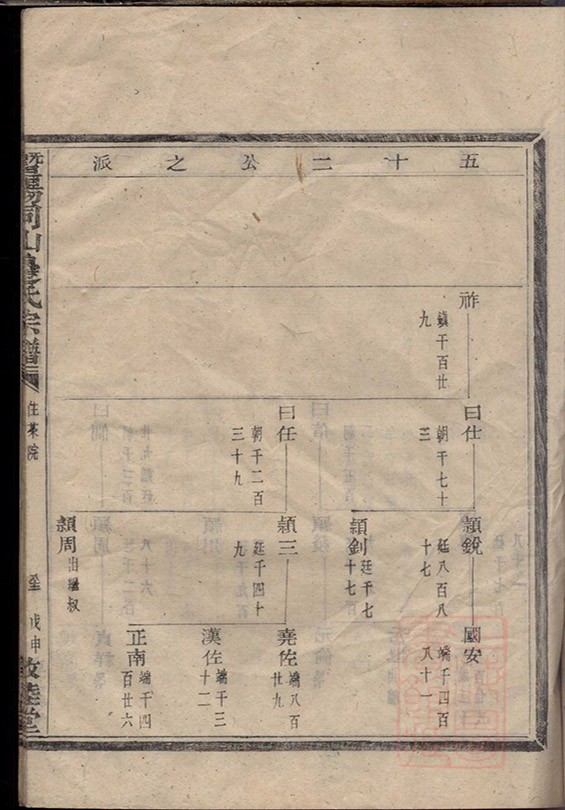 五十二公之派
祚
鎮千百廿
九
曰仕
朝千七十
三
曰任
朝千二百
三十九
頴銳
廷八百八
十七
頴釗
廷千七
十七百
頴三
廷千四十
九
頴周
出繼叔
國安
端千四百
八十一
堯佐
端八百
廿九
漢佐
端千三
十二
正南
端千四
百廿六
暨陽同山邊氏宗譜
住菜院
戊申
敦睦堂